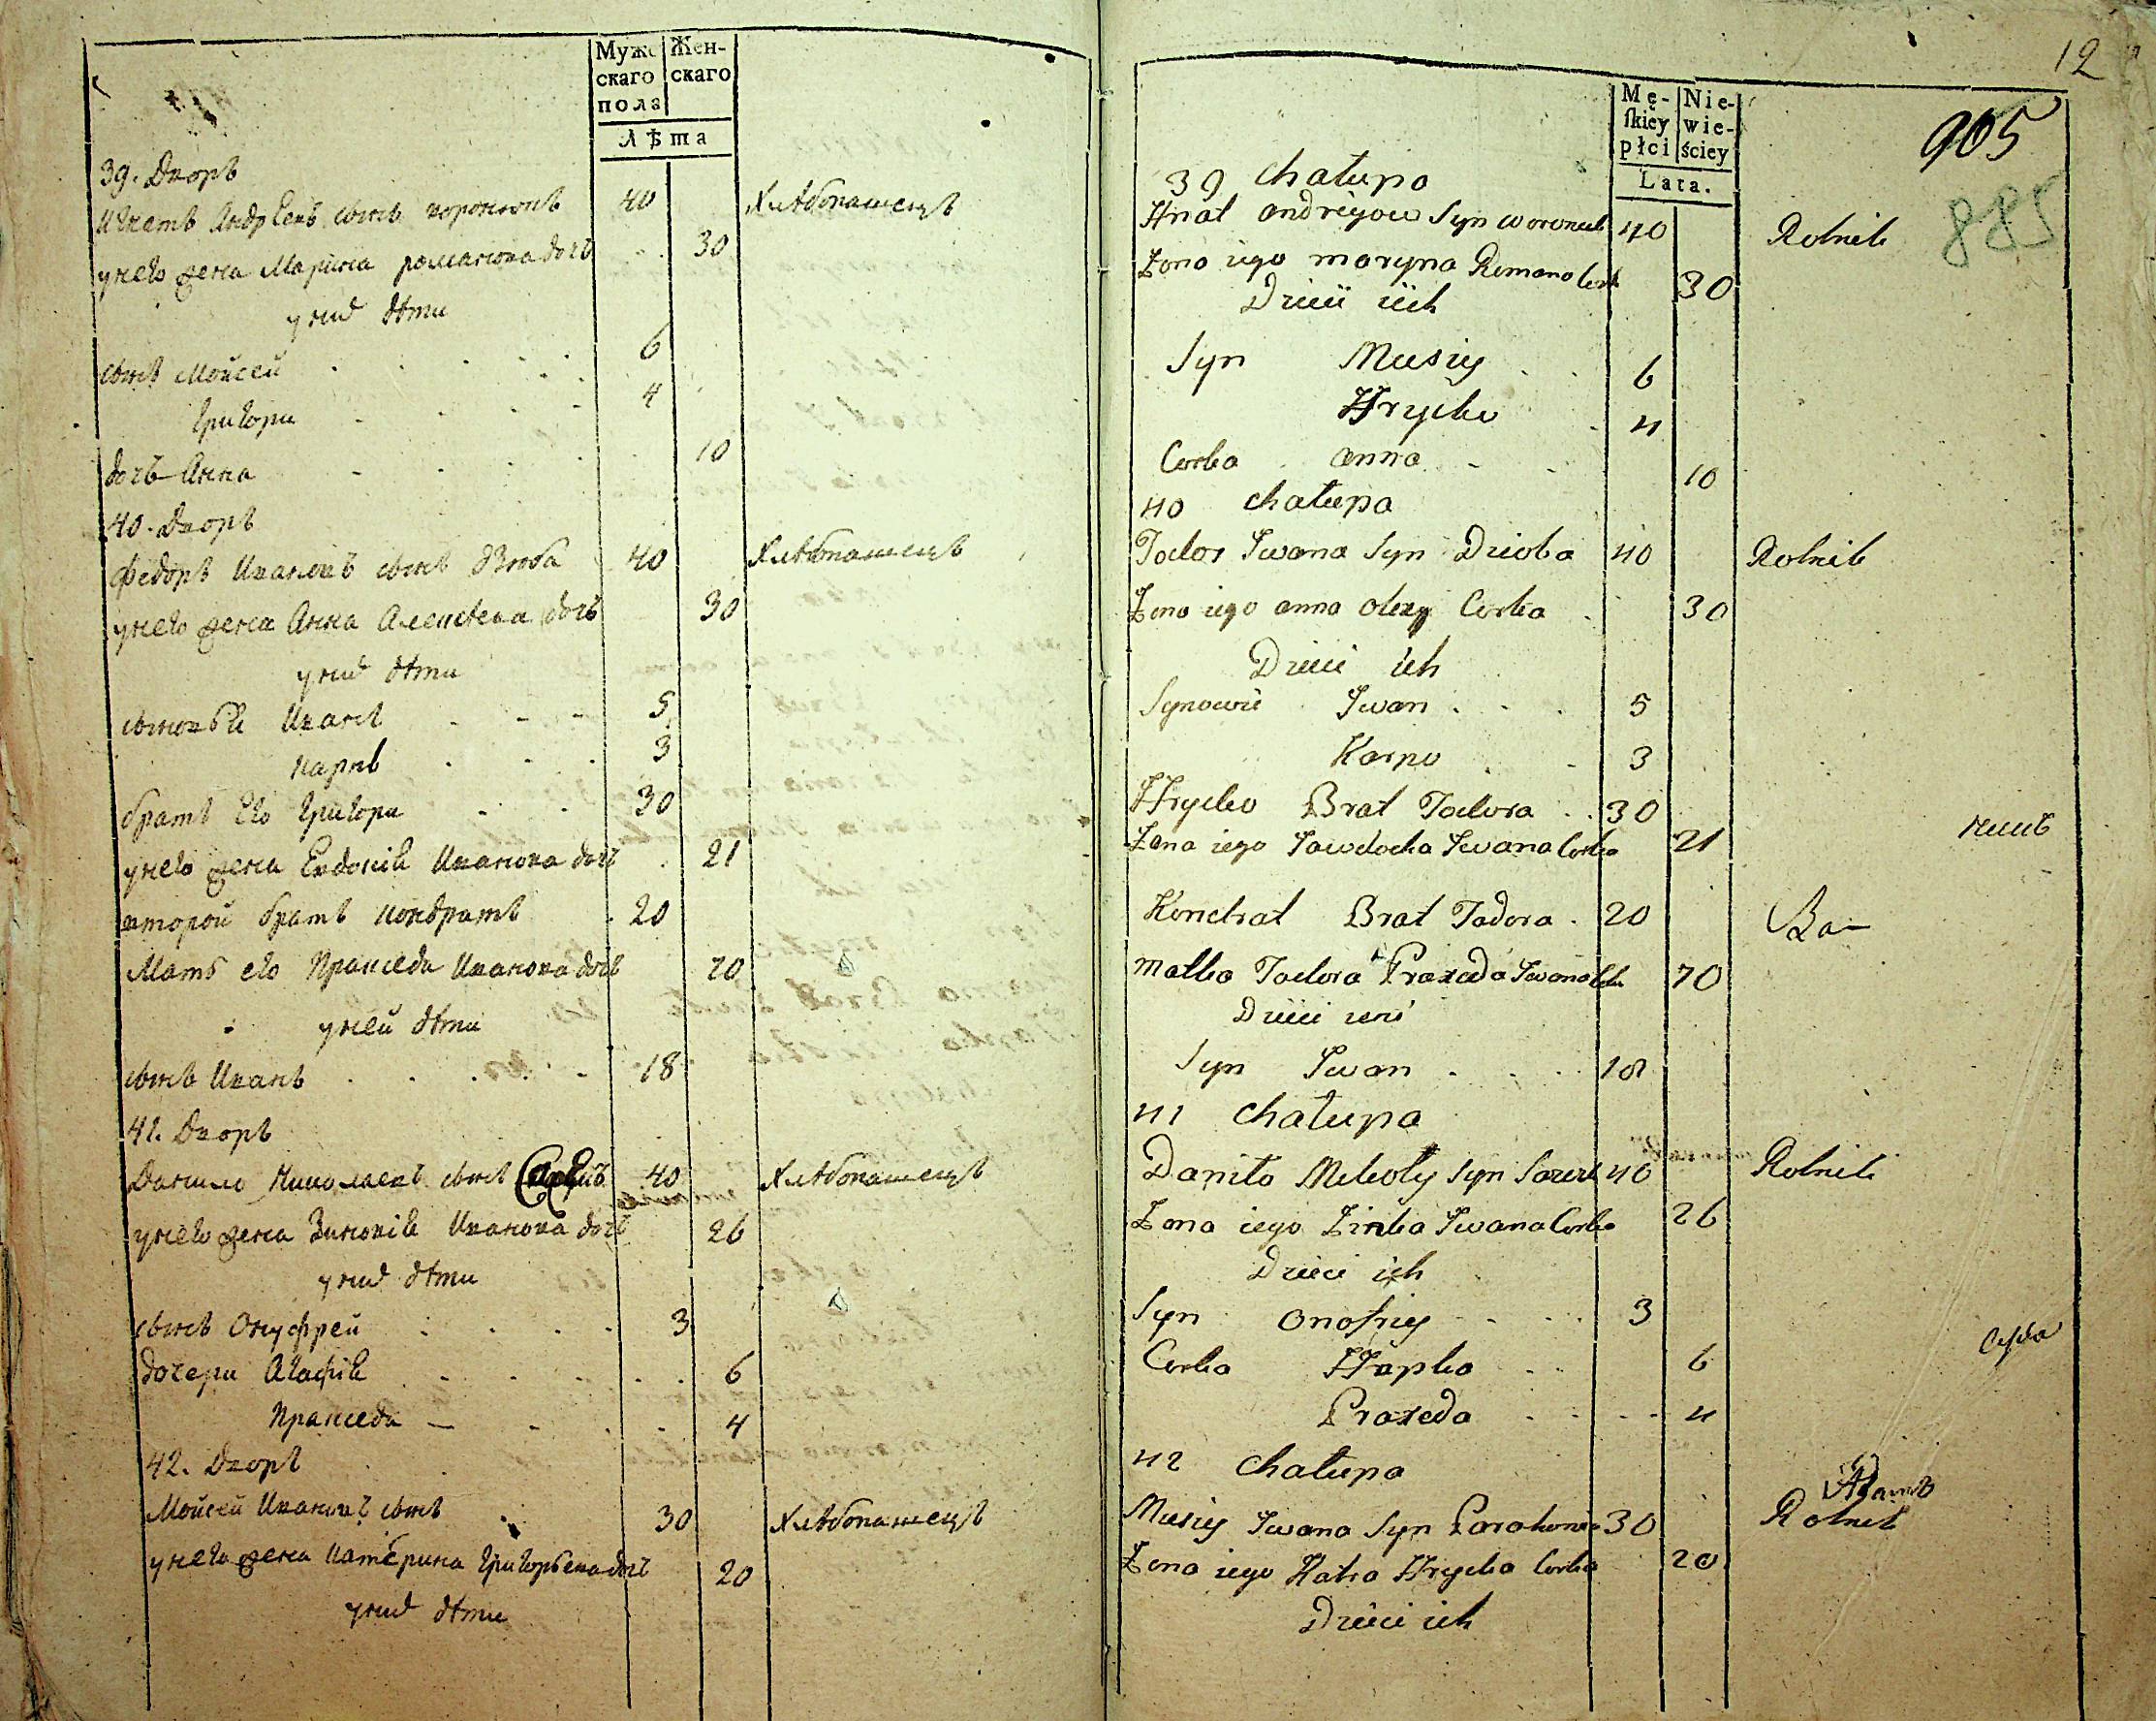 Муже
скаго
пола
Жен-
скаго
Лѣта
39. Дворъ
Игнатъ Андрѣевъ сынъ воронюкъ 40 Хлѣбопашецъ
унего жена Марина романова дочь 30
унихъ дѣти
сынъ Мойсей 6
Григори 4
дочь Анна 10
40. Дворъ
Федоръ Ивановъ сынъ дзюба 40 Хлѣбопашецъ
унего жена Анна Алексѣева дочь 30
унихъ дѣти
сыновьи Иванъ 5
Карпъ 3
братъ Его Григори 30
унего жена Евдокия Иванова дочь 21
второй братъ кондратъ 20
Мать его Пракседа Иванова дочь 70
уней дѣти
сынъ Иванъ 18
41. Дворъ
Данило Николаевъ сынъ 40 Хлѣбопашецъ
унего жена Зиновія Иванова дочь 26
унихъ дѣти
сынъ Онуфрей 3
дочери Агафія 6
Пракседа 4
42. Дворъ
Мойсей Ивановъ сынъ 30 Хлѣбопашецъ
унего жена Катерина Григорьева дочь 20
унихъ дѣти
12
905
885
Mę-
skiey
płci
Nie-
wie-
ściey
Lata.
39 Chałupa
Hnat andreyow Syn woroniuk 40 Rolnik
Żona iego maryna Romana Cork 30
Dzieci ich
Syn Musiy 6
Hrycko 4
Corka anna 10
40 Chałupa
Todor Iwana Syn Dziuba 40 Rolnik
Żona iego anna Olexy Corka 30
Dzieci ich
Synowie Iwan 5
Karpo 3
Hrycko Brat Todora 30
Żona iego Jawdocha Iwana Corka 21
Kondrat Brat Todora 20
matka Todora Praxeda Iwana Corka 70
Dzieci ieii
Syn Iwan 18
41 Chałupa
Daniło Mikoły Syn 40 Rolnik
Żona iego Zinka Iwana Corka 26
Dzieci ich
Syn Onofriy 3
Corka Hapka 6
Praxeda 4
42 Chałupa
Musiy Iwana Syn 30 Rolnik
Żona iego Katra Hrycka Corka 20
Dzieci ich